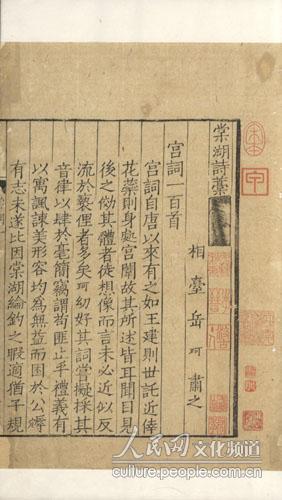 棠湖詩藁
相臺岳珂肅之
宫詞一百首
宫詞自唐以來有之如王建則世託近倖
花蘂則身處宫闈故其所述皆耳聞目見
後之倣其體者徒想像而言未必近似反
流於褻俚者多矣珂幼好其詞嘗擬採其
音律以肆於毫簡竊謂苟匪止乎禮義有
以寓諷諫美形容均為無益而困於公縛
有志未遂比因棠湖綸釣之暇適猶子規
人民网 文化频道
culture.people.com.cn